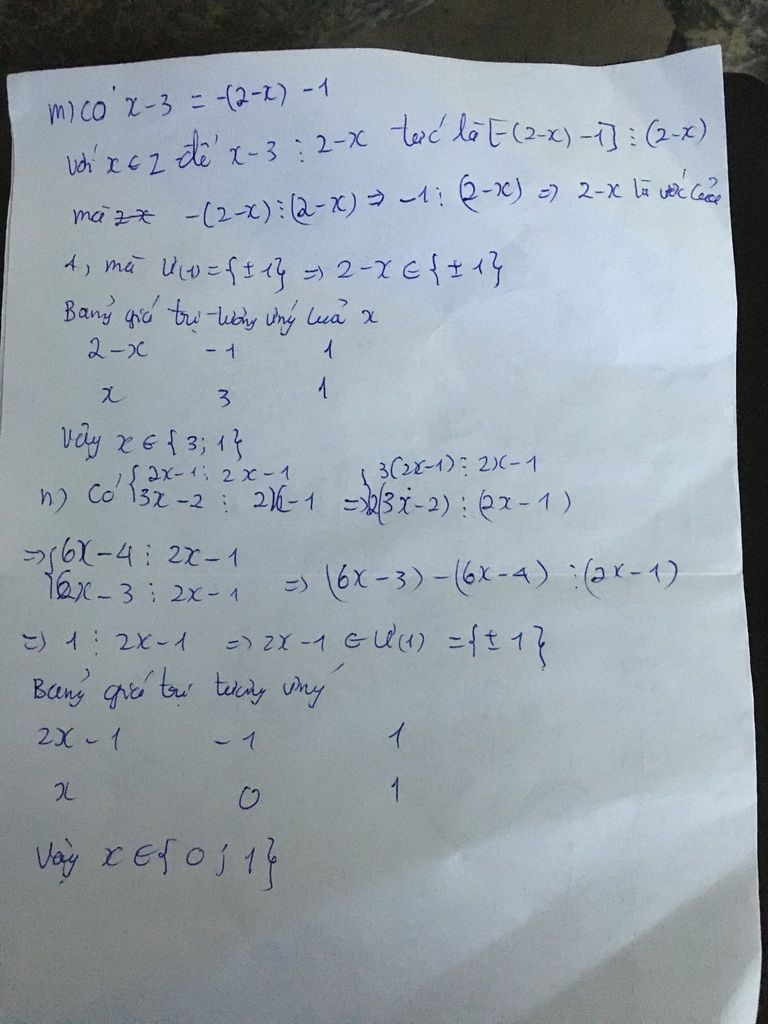 m) Có x-3 = -(2-x) -1
với x ∈ Z để x-3 ⋮ 2-x tức là [-(2-x) -1] ⋮ (2-x)
mà -(2-x) ⋮ (2-x) => -1 ⋮ (2-x) => 2-x là ước của
1, mà Ư(1) = {±1} => 2-x ∈ {±1}
Bảng giá trị tương ứng của x
2-x -1 1
x 3 1
Vậy x ∈ {3; 1}
n) Có { 2x-1 ⋮ 2x-1 { 3(2x-1) ⋮ 2x-1
3x-2 ⋮ 2x-1 => 2(3x-2) ⋮ (2x-1)
=> { 6x-4 ⋮ 2x-1
6x-3 ⋮ 2x-1 => (6x-3) - (6x-4) ⋮ (2x-1)
=> 1 ⋮ 2x-1 => 2x-1 ∈ Ư(1) = {±1}
Bảng giá trị tương ứng
2x-1 -1 1
x 0 1
Vậy x ∈ {0; 1}